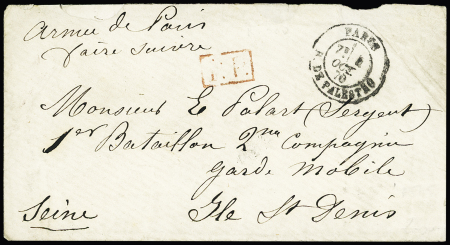 Armée de Paris
faire suivre
P.P.
PARIS
R. DE PALESTRO
7E
OCT.
70
Monsieur E Palart (Sergent)
1er Bataillon 2me Compagnie
Garde Mobile
Seine Ile St Denis